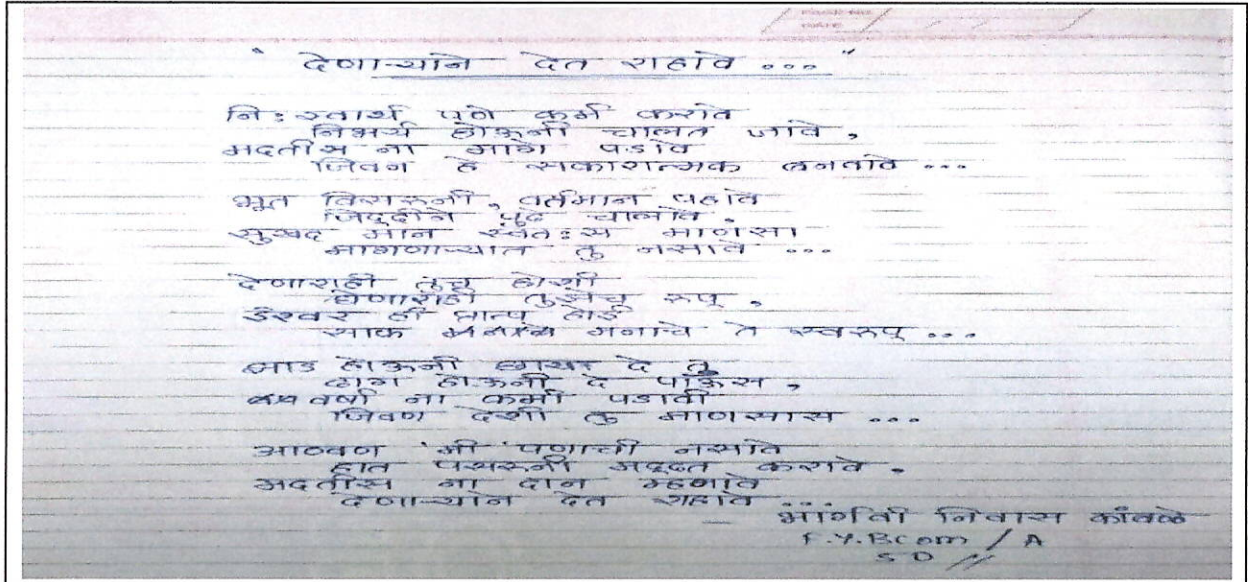 " देणाऱ्याने देत राहावे ... "
नि: स्वार्थ पणे कर्म करावे
निर्भय होऊनी चालत जावे,
मदतीस ना मागे पडावे
जिवन हे सकारात्मक बनवावे ...
भूत विसरूनी, वर्तमान पहावे
जिद्दीने पुढे चालावे.
सुखद मान स्वत:स माणसा
मागणाऱ्यात तु नसावे ...
देणाराही तुच होशी
घेणाराही तुझेच रूप,
ईश्वर ही प्राप्त होई
साफ मनाचे ते स्वरूप ...
झाड होऊनी छाया दे तु
ढग होऊनी दे पाऊस,
वर्षा ना कमी पडावी
जिवण देशी तु माणसास ...
आठवण 'मी' पणाची नसावे
हात पसरूनी मद्दत करावे.
मदतीस ना दान म्हणावे
देणाऱ्याने देत राहावे ...
भार्गवी निवास कांबळे
F.Y.BCom / A
50 //